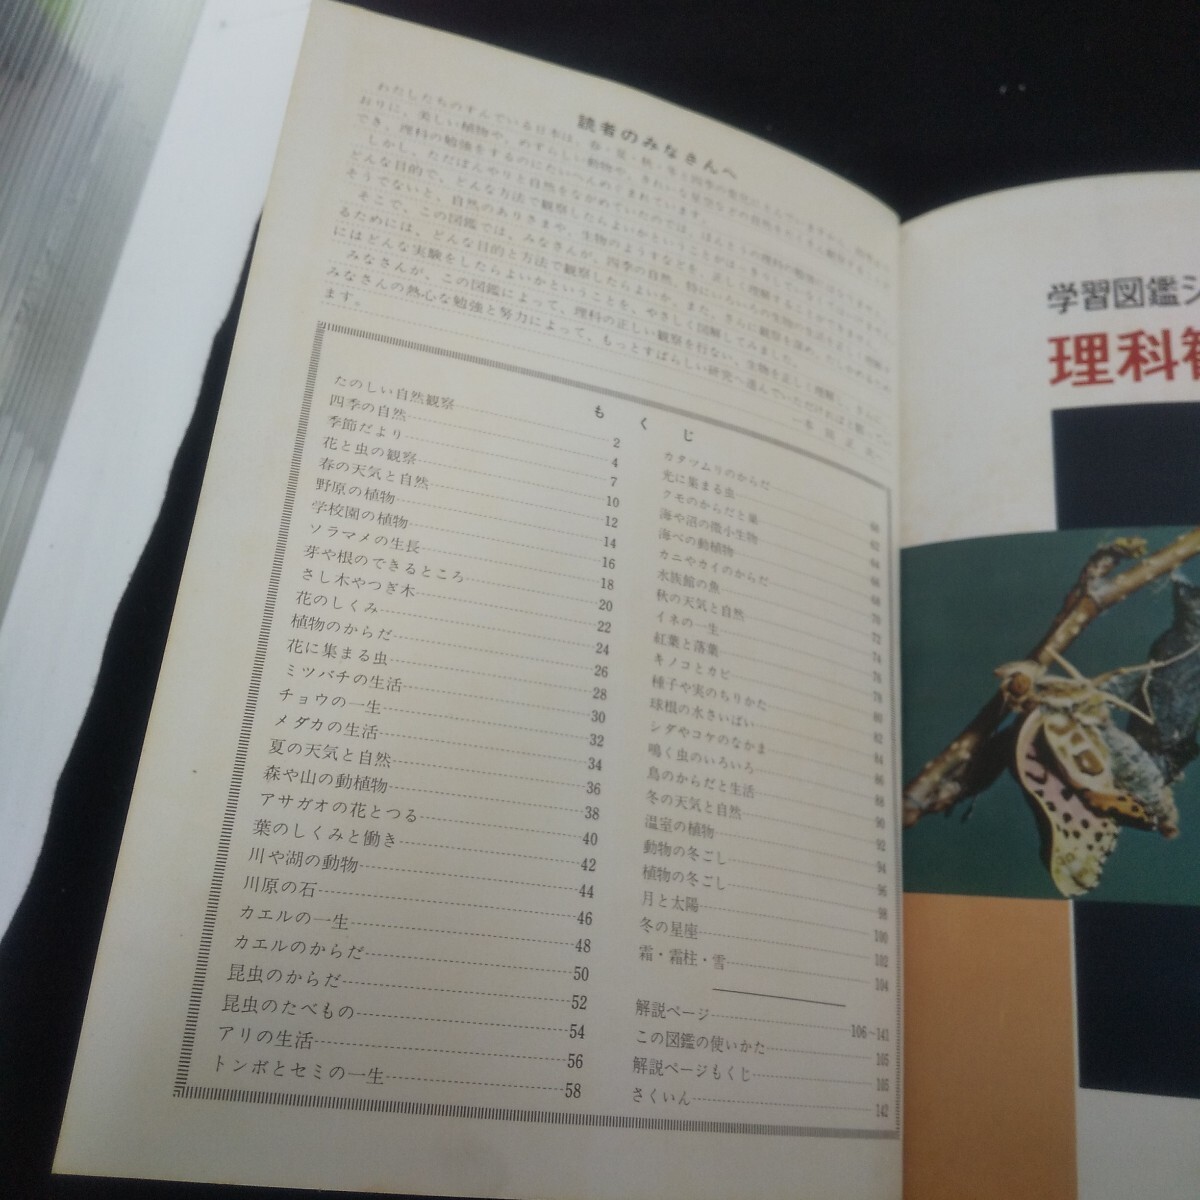 読者のみなさんへ
わたしたちのすんでいる日本は、春・夏・秋・冬と四季の変化に
おりに、美しい植物や、めずらしい動物や、きれいな星空などの自然を
でき、理科の勉強をするのにたいへんめぐまれています。
しかし、ただぼんやりと自然をながめていたのでは、ほんとうの理科の勉強になりません。
どんな目的で、どんな方法で観察したらよいかということが、はっきりしていなくてはいけません。
そうでないと、自然のありさまや、生物のようすなどを、正しく理解することができません。
そこで、この図鑑では、みなさんが、四季の自然、特にいろいろの生物の生活を正しく理解す
るためには、どんな目的と方法で観察したらよいか、また、さらに観察を深め、たしかめるため
にはどんな実験をしたらよいかということを、やさしく図解してみました。
みなさんが、この図鑑によって、理科の正しい観察を行ない、生物を正しく理解し、さらに
みなさんの熱心な勉強と努力によって、もっとすばらしい研究へ進んでいただければよいと願ってい
ます。
もくじ
たのしい自然観察 2
四季の自然 4
季節だより 7
花と虫の観察 10
春の天気と自然 12
野原の植物 14
学校園の植物 16
ソラマメの生長 18
芽や根のできるところ 20
さし木やつぎ木 22
花のしくみ 24
植物のからだ 26
花に集まる虫 28
ミツバチの生活 30
チョウの一生 32
メダカの生活 34
夏の天気と自然 36
森や山の動植物 38
アサガオの花とつる 40
葉のしくみと働き 42
川や湖の動物 44
川原の石 46
カエルの一生 48
カエルのからだ 50
昆虫のからだ 52
昆虫のたべもの 54
アリの生活 56
トンボとセミの一生 58
カタツムリのからだ 60
光に集まる虫 62
クモのからだと巣 64
海や沼の微小生物 66
海べの動植物 68
カニやカイのからだ 70
水族館の魚 72
秋の天気と自然 74
イネの一生 76
紅葉と落葉 78
キノコとカビ 80
種子や実のちりかた 82
球根の水さいばい 84
シダやコケのなかま 86
鳴く虫のいろいろ 88
鳥のからだと生活 90
冬の天気と自然 92
温室の植物 94
動物の冬ごし 96
植物の冬ごし 98
月と太陽 100
冬の星座 102
霜・霜柱・雪 104
解説ページ 106~141
この図鑑の使いかた 105
解説ページもくじ 105
さくいん 142
学習図鑑シ
理科観